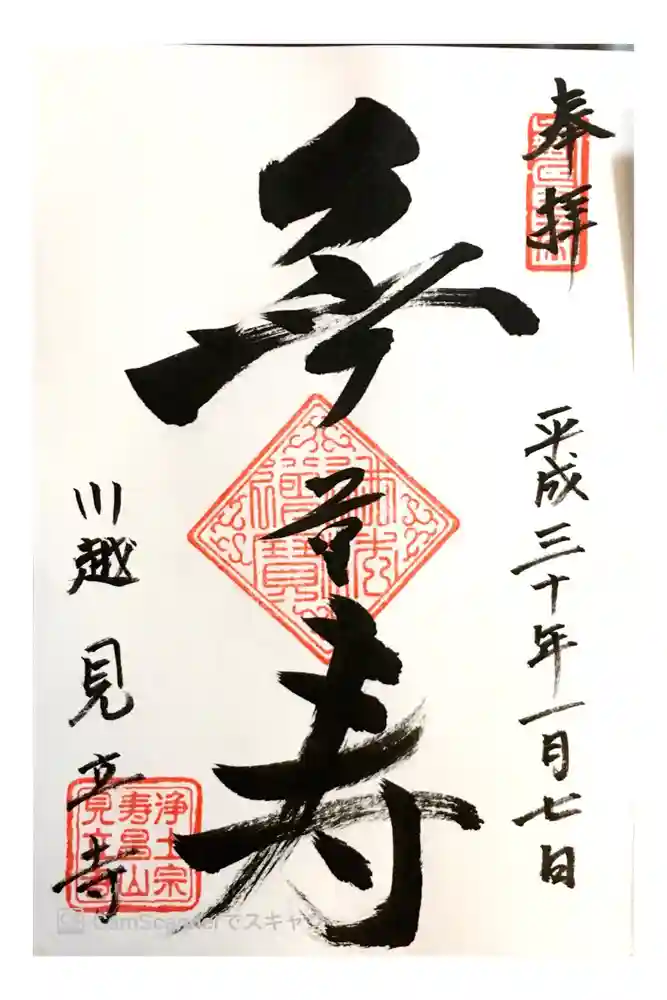 奉拝
平成三十年一月七日
無量寿
佛法
僧寶
川越 見立寺
浄土宗
寿昌山
見立寺
CS CamScannerでスキャン